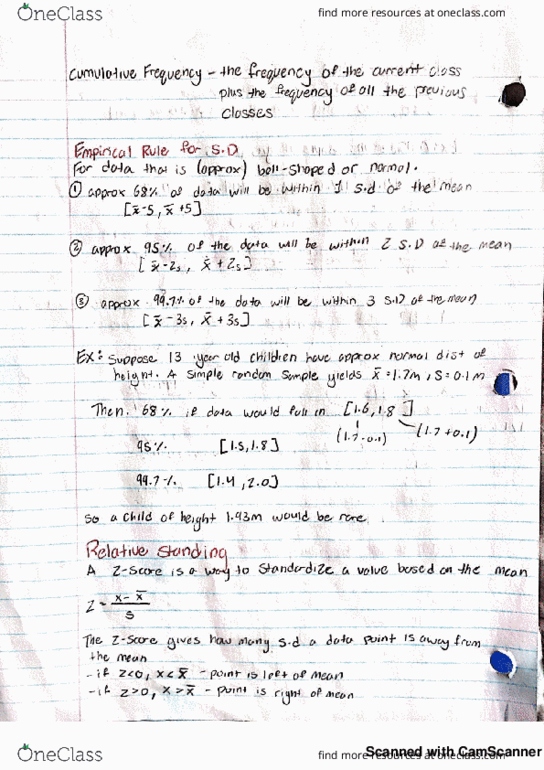 OneClass
find more resources at oneclass.com
Cumulative Frequency - the frequency of the current class
plus the frequency of all the previous
classes
Empirical Rule for S.D
For data that is (approx) bell-shaped or normal.
① approx 68% of data will be within 1 s.d of the mean
[x̄-s, x̄+s]
② approx 95% of the data will be within 2 S.D of the mean
[x̄-2s, x̄+2s]
③ approx 99.7% of the data will be within 3 S.D of the mean
[x̄-3s, x̄+3s]
Ex: Suppose 13 year old children have approx normal dist of
height. A simple random sample yields x̄=1.7m, s=0.1m
Then 68% if data would fall in [1.6, 1.8]
(1.7-0.1) (1.7+0.1)
95% [1.5, 1.8]
99.7% [1.4, 2.0]
So a child of height 1.43m would be rare
Relative Standing
A Z-score is a way to standardize a value based on the mean
Z = x-x̄ / s
The Z-score gives how many s.d a data point is away from
the mean
- if z<0, x<x̄ - point is left of mean
- if z>0, x>x̄ - point is right of mean
OneClass
find more resources at oneclass.com
Scanned with CamScanner